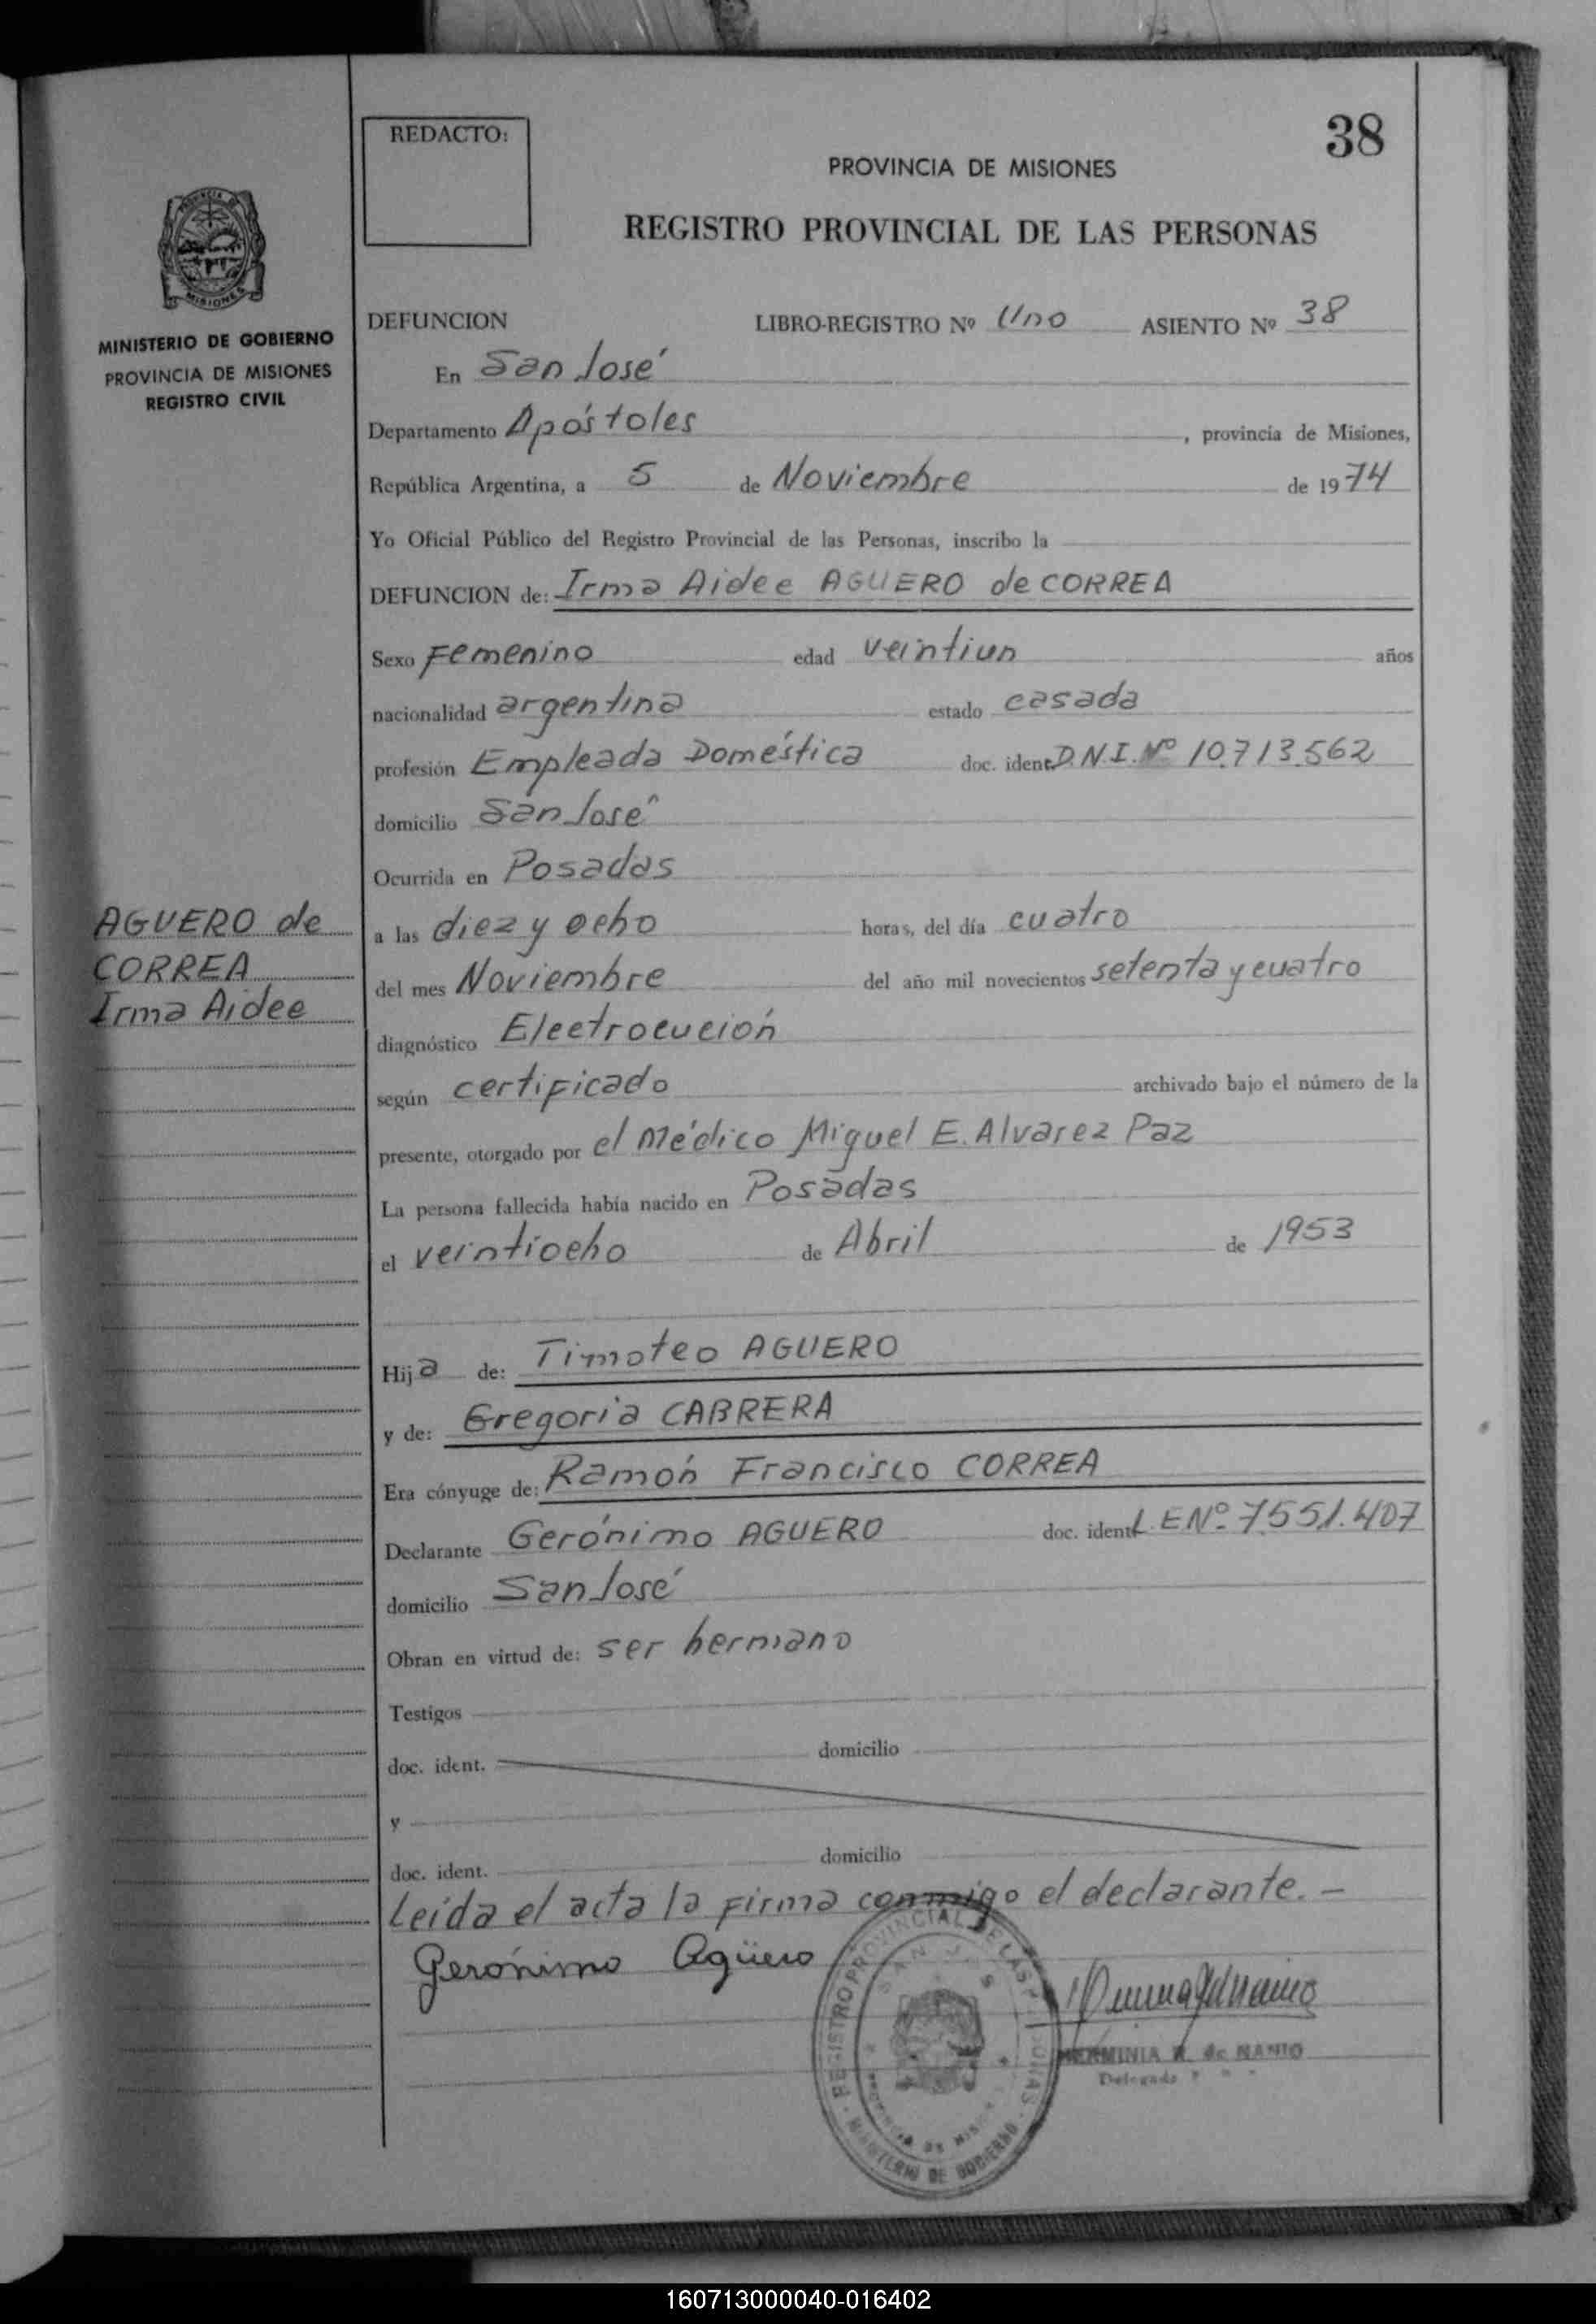 38
REDACTO:
PROVINCIA DE MISIONES
REGISTRO PROVINCIAL DE LAS PERSONAS
MISIONES
MINISTERIO DE GOBIERNO
PROVINCIA DE MISIONES
REGISTRO CIVIL
DEFUNCION LIBRO-REGISTRO Nº Uno ASIENTO Nº 38
En San José
Departamento Apóstoles, provincia de Misiones,
República Argentina, a 5 de Noviembre de 1974
Yo Oficial Público del Registro Provincial de las Personas, inscribo la
DEFUNCION de: Irma Aidee AGUERO de CORREA
Sexo Femenino edad veintiun años
nacionalidad argentina estado casada
profesión Empleada Doméstica doc. ident. D.N.I. Nº 10.713.562
domicilio San José
Ocurrida en Posadas
AGUERO de
CORREA
Irma Aidee
a las diez y ocho horas, del día cuatro
del mes Noviembre del año mil novecientos setenta y cuatro
diagnóstico Electrocución
según certificado archivado bajo el número de la
presente, otorgado por el Médico Miguel E. Alvarez Paz
La persona fallecida había nacido en Posadas
el veintiocho de Abril de 1953
Hija de: Timoteo AGUERO
y de: Gregoria CABRERA
Era cónyuge de: Ramón Francisco CORREA
Declarante Gerónimo AGUERO doc. ident. L.E Nº 7.551.407
domicilio San José
Obran en virtud de: ser hermano
Testigos
doc. ident. domicilio
y
doc. ident. domicilio
Leída el acta la firma conmigo el declarante. -
Gerónimo Agüero
REGISTRO PROVINCIAL DE LAS PERSONAS
MINISTERIO DE GOBIERNO
HERMINIA R. de NANIO
Delegada
160713000040-016402